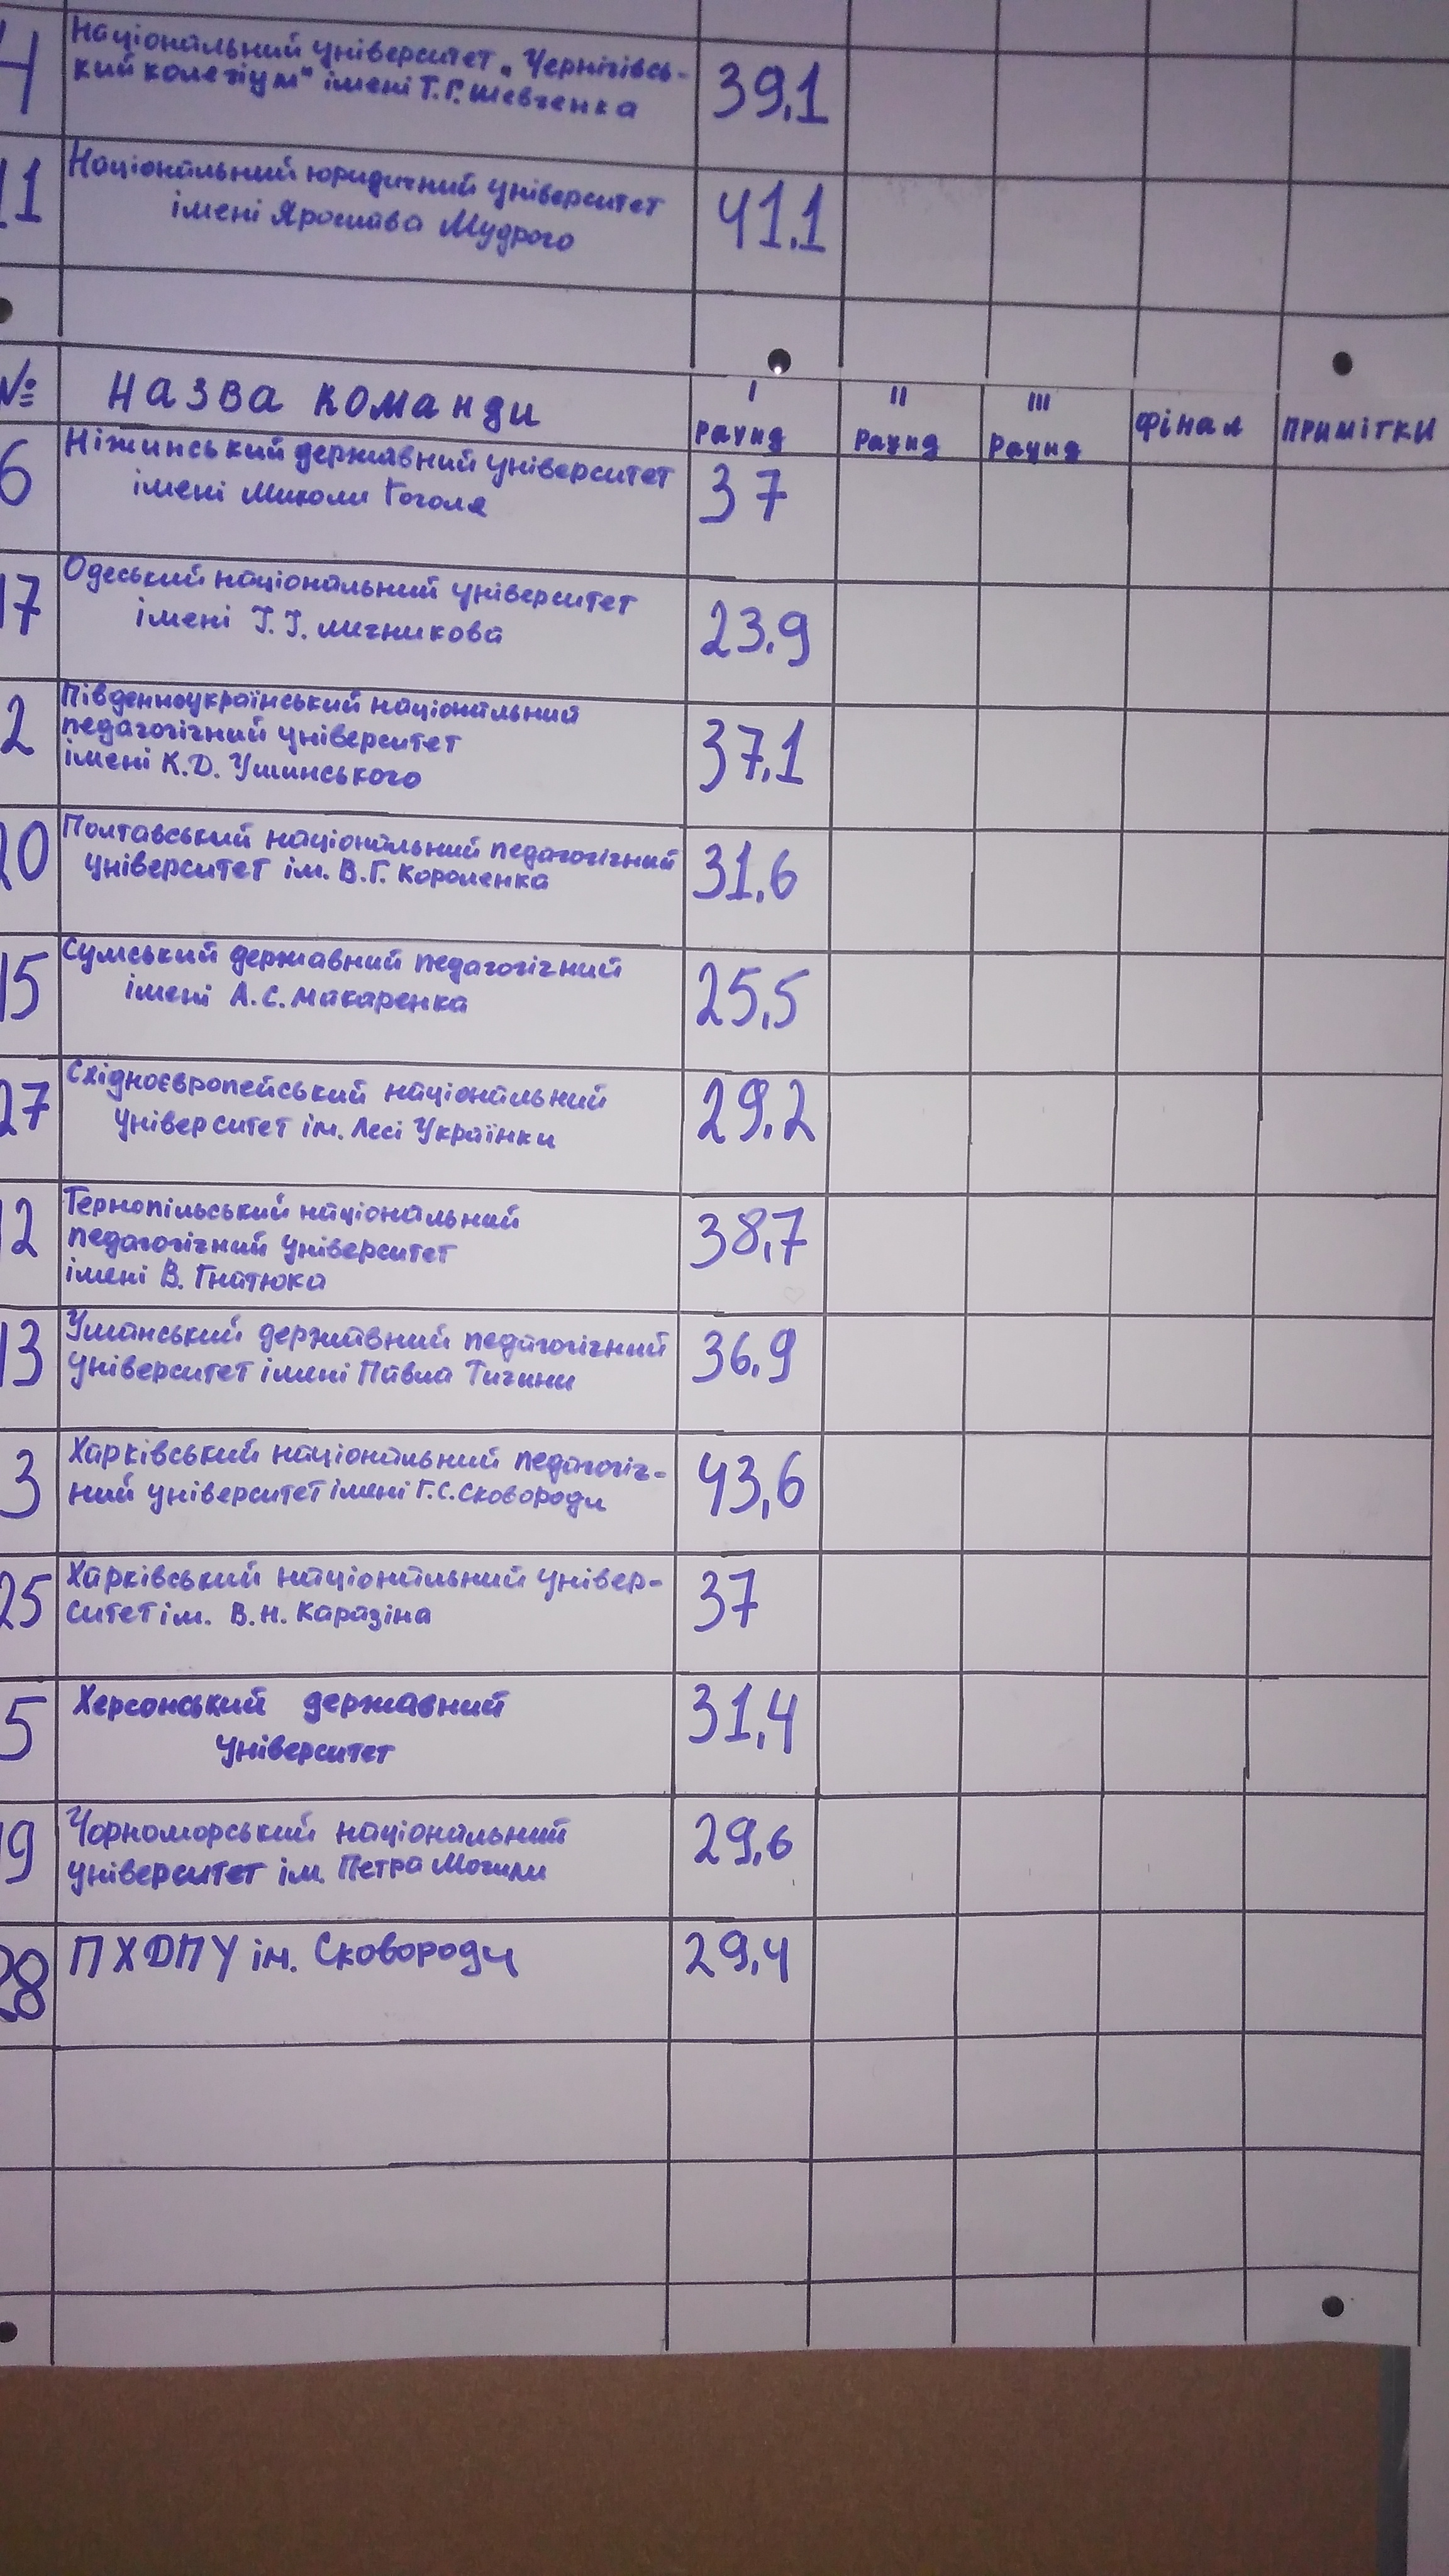 4
Національний університет „Чернігівсь-
кий колегіум" імені Т.Г. Шевченка
39,1
11
Національний юридичний університет
імені Ярослава Мудрого
41,1
№ Назва команди I раунд II раунд III раунд фінал примітки
6
Ніжинський державний університет
імені Миколи Гоголя
37
17
Одеський національний університет
імені І.І. Мечникова
23,9
2
Південноукраїнський національний
педагогічний університет
імені К.Д. Ушинського
37,1
20
Полтавський національний педагогічний
університет ім. В.Г. Короленка
31,6
15
Сумський державний педагогічний
імені А.С. Макаренка
25,5
27
Східноєвропейський національний
університет ім. Лесі Українки
29,2
12
Тернопільський національний
педагогічний університет
імені В. Гнатюка
38,7
13
Уманський державний педагогічний
університет імені Павла Тичини
36,9
3
Харківський національний педагогіч-
ний університет імені Г.С. Сковороди
43,6
25
Харківський національний універ-
ситет ім. В.Н. Каразіна
37
5
Херсонський державний
університет
31,4
19
Чорноморський національний
університет ім. Петра Могили
29,6
28
ПХДПУ ім. Сковороди
29,4